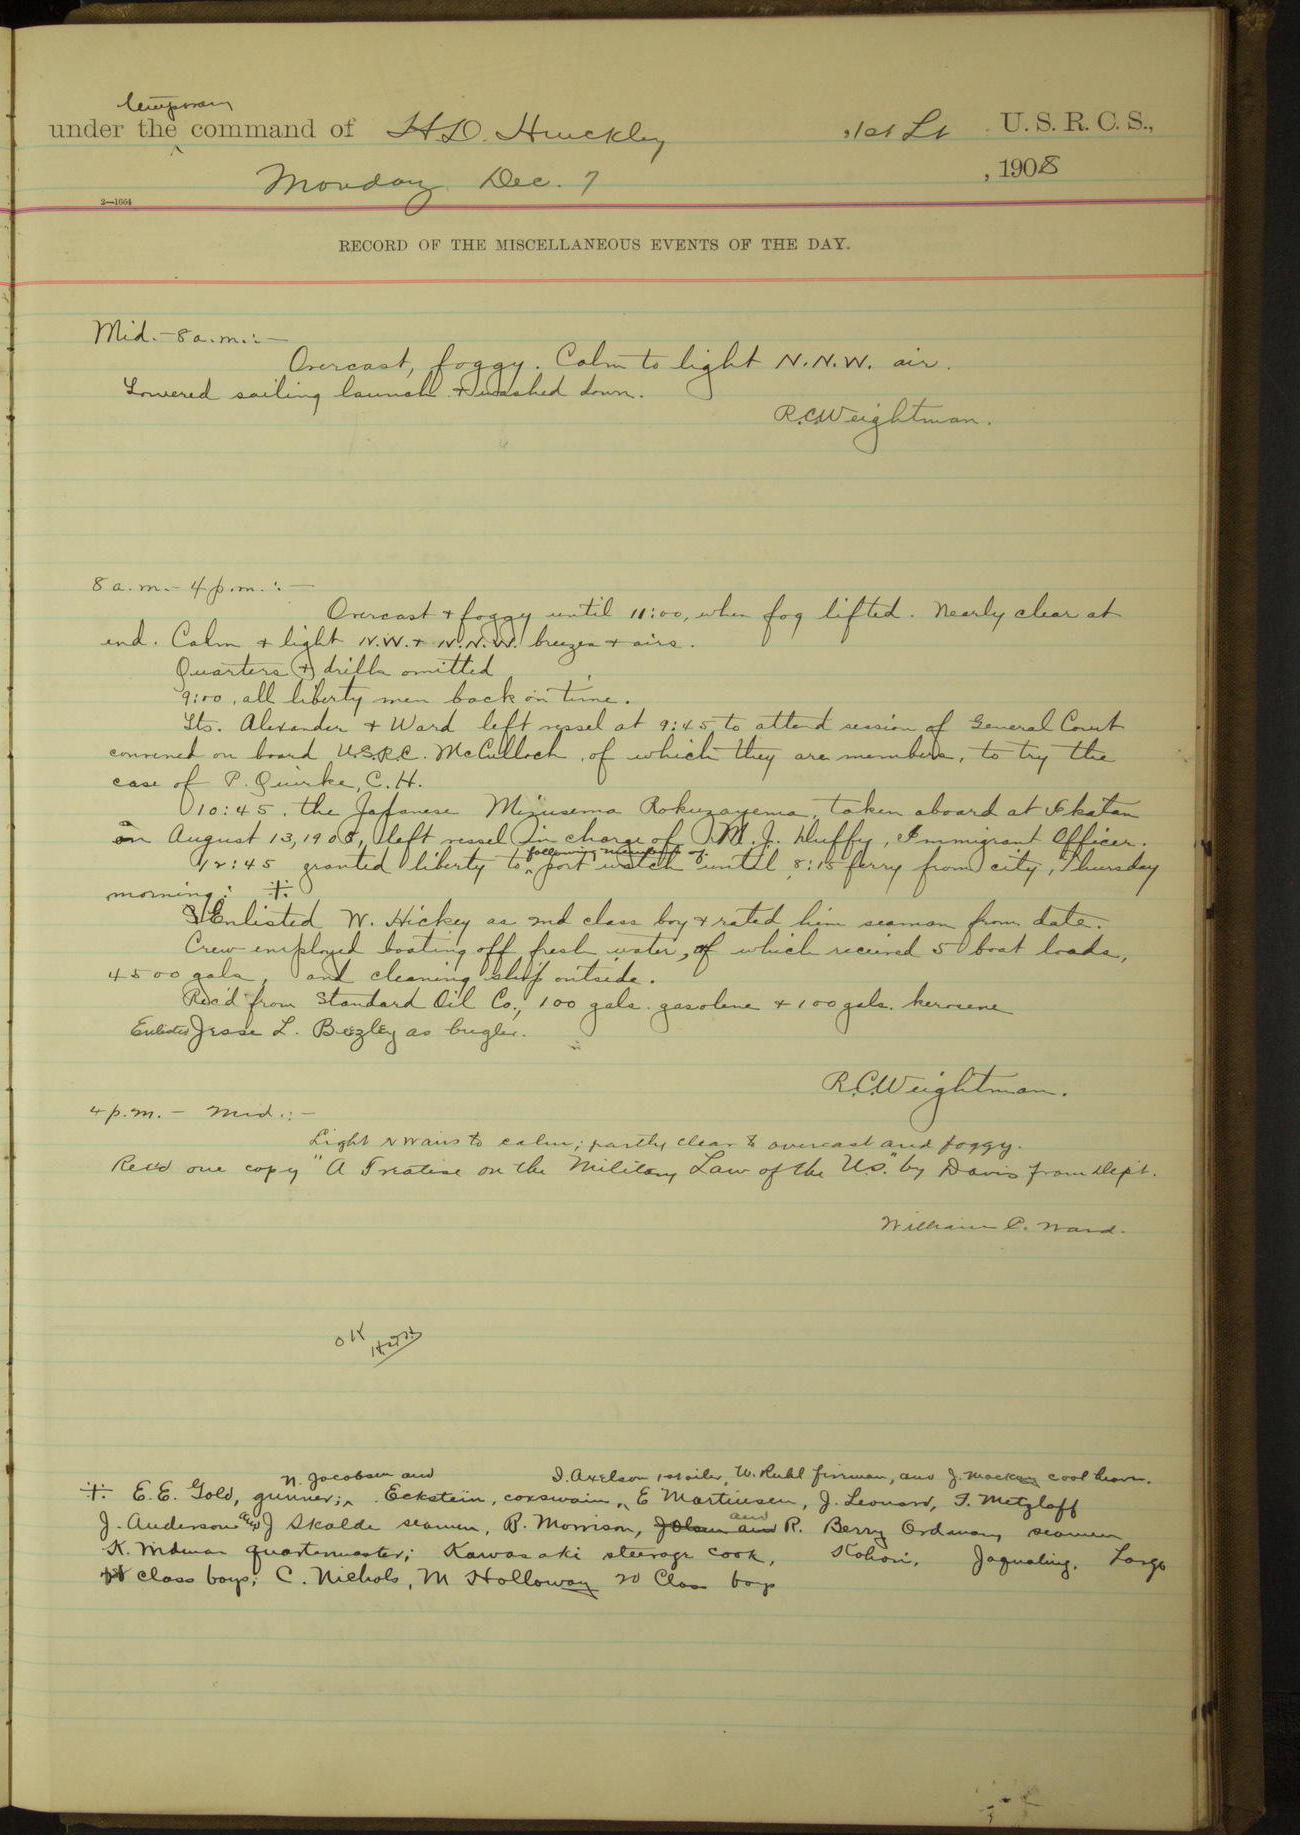 temporary
under the ^ command of H.D. Hinckley, 1st Lt. U. S. R. C. S.,
Monday Dec. 7, 1908
2—1664
RECORD OF THE MISCELLANEOUS EVENTS OF THE DAY.
Mid.-8 a.m.:-
Overcast, foggy. Calm to light N.N.W. air.
Lowered sailing launch & washed down.
R.C. Weightman.
8 a.m.- 4 p.m.:-
Overcast & foggy until 11:00, when fog lifted. Nearly clear at
end. Calm & light N.W. & N.N.W. breezes & airs.
Quarters & drills omitted
9:00, all liberty men back on time.
Lts. Alexander & Ward left vessel at 9:45 to attend session of General Court
convened on board U.S.R.C. McCulloch, of which they are members, to try the
case of P. Quirke, C.H.
10:45, the Japanese Rokuzayema, taken aboard at Ikatan
on August 13, 1908, left vessel in charge of M.J. Duffy, Immigrant Officer.
following members of
12:45 granted liberty to ^ port watch until 8:15 ferry from city, Thursday
morning: ‡.
Enlisted W. Hickey as 2nd class boy & rated him seaman from date.
Crew employed boating off fresh water, of which received 5 boat loads,
4500 gals, and cleaning ship outside.
Rec'd from Standard Oil Co., 100 gals. gasolene & 100 gals. kerosene
Enlisted Jesse L. as bugler.
R.C. Weightman.
4 p.m. - Mid.:-
Light NW airs to calm; partly clear to overcast and foggy.
Rec'd one copy "A Treatise on the Military Law of the U.S." by Davis from Dept.
William C. Ward.
OK
N. Jacobsen and I. Axelson 1st oiler, W. Ruhl fireman, and J. Mackay coal heaver.
‡. E.E. Gold, gunner; ^ Eckstein, coxswain, ^ E Martinsen, J. Leonard, F. Metzlaff
J. Anderson and J Skalde seamen, B. Morrison, and R. Berry Ordinary seamen
K. quartermaster; Kawasaki steerage cook, Kohori, Jaqualing, Largo
1st class boys; C. Nichols, M Holloway 2d Class boys